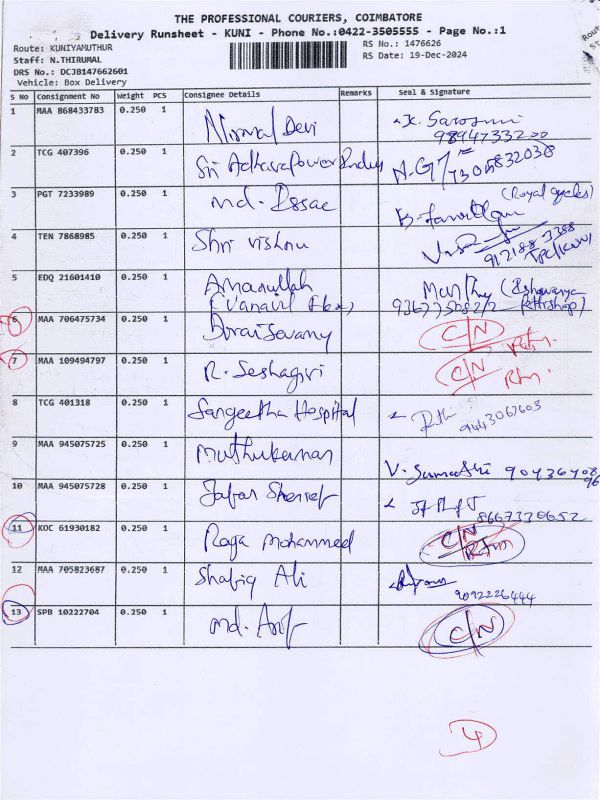 THE PROFESSIONAL COURIERS, COIMBATORE
Delivery Runsheet - KUNI - Phone No.:0422-3505555 - Page No.:1
Route: KUNIYAMUTHUR
RS No.: 1476626
Staff: N.THIRUMAL
RS Date: 19-Dec-2024
DRS No.: DCJB147662601
Vehicle: Box Delivery
Rou
St
S No Consignment No Weight PCS Consignee Details Remarks Seal & Signature
1 MAA 868433783 0.250 1 Nirmal Devi K. Sarosini
9894733200
2 TCG 407396 0.250 1 Sri Adhavapower Indus
7305832038
3 PGT 7233989 0.250 1 Md. Issac (Royal cycles)
4 TEN 7868985 0.250 1 Shri Vishnu
5 EDQ 21601410 0.250 1 Amanullah (Eshwarya
(Vanavil flex) Petroshop)
6 MAA 706475734 0.250 1 Doraiswamy C/N Rtn
7 MAA 109494797 0.250 1 R. Seshagiri C/N Rtn
8 TCG 401318 0.250 1 Sangeetha Hospital
9443067603
9 MAA 945075725 0.250 1 Muthukumar V. Sumathi
10 MAA 945075728 0.250 1 Jafar Sherief
8667330652
11 KOC 61930182 0.250 1 Raja Mohammed C/N Rtn
12 MAA 705823687 0.250 1 Shafiq Ali
9092226444
13 SPB 10222704 0.250 1 Md. Arif C/N
4